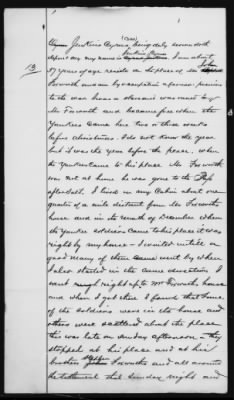 Jenkins Cyrus, (Col) being duly sworn doth
depose and say my name is Jenkins Cyrus I am about
57 years of age reside on the place of Mr John
13
Foxworth and am by occupation a farmer previous
to the war I was a slave and was owned by
Mr Foxworth and became free when the
Yankees came here two or three weeks
before Christmas. I do not know the year
but it was the year before the peace, when
the Yankees came to his place Mr. Foxworth
was not at home he was gone to the
I lived in my Cabin about one
quarter of a mile distant from Mr Foxworth
house and in the month of December when
the Yankee soldiers came to his place it was
right by my house - I waited until a
good many of them went by when
I also started in the same direction I
went right up to Mr Foxworth house
and when I got there I found that some
of the soldiers were in the house and
others were scattered about the place
this was late on Sunday afternoon - they
stopped at his place and at his
brother Foxworths and all around
the settlement that Sunday night and